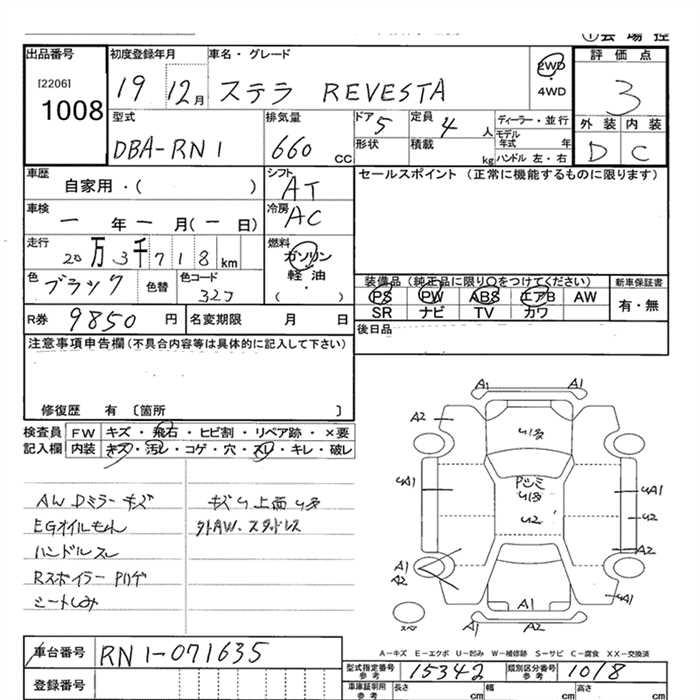 出品番号 初度登録年月 車名・グレード ①会場控
[2206] 19 12月 ステラ REVESTA 2WD 評価点
1008 4WD 3
型式 排気量 ドア 定員 ディーラー・並行 外装 内装
DBA-RN1 660cc 5 4人 モデル年式 年 D C
形状 積載 kg ハンドル 左・右
車歴 シフト セールスポイント (正常に機能するものに限ります)
自家用・( ) AT
車検 冷房
一年一月(一日) AC
走行 燃料
20万3千718km ガソリン
色 色替 色コード 軽油 装備品 (純正品に限り○をつけてください) 新車保証書
ブラック 32J ・( ) PS PW ABS エアB AW 有・無
SR ナビ TV カワ
R券 9850円 名変期限 月 日 後日品
注意事項申告欄(不具合内容等は具体的に記入して下さい)
修復歴 有 〔箇所 〕
検査員 FW キズ・飛石・ヒビ割・リペア跡・×要
記入欄 内装 キズ・汚レ・コゲ・穴・スレ・キレ・破レ
AW Dミラーキズ
EGオイルもれ 外AW.スタッドレス
ハンドルスレ
Rスポイラー Pハゲ
シートしみ
A1 A1
A2
U1多
Pシミ
U1多
UA1 UA1
U2 U2
A2
A1
A2
UA1
A1
A1 A2
スペア
A-キズ E-エクボ U-凹み W-補修跡 S-サビ C-腐食 XX-交換済
車台番号 RN1-071635 型式指定番号 参考 15342 類別区分番号 参考 1018
登録番号 車庫証明用 参考 長さ cm 幅 cm 高さ cm